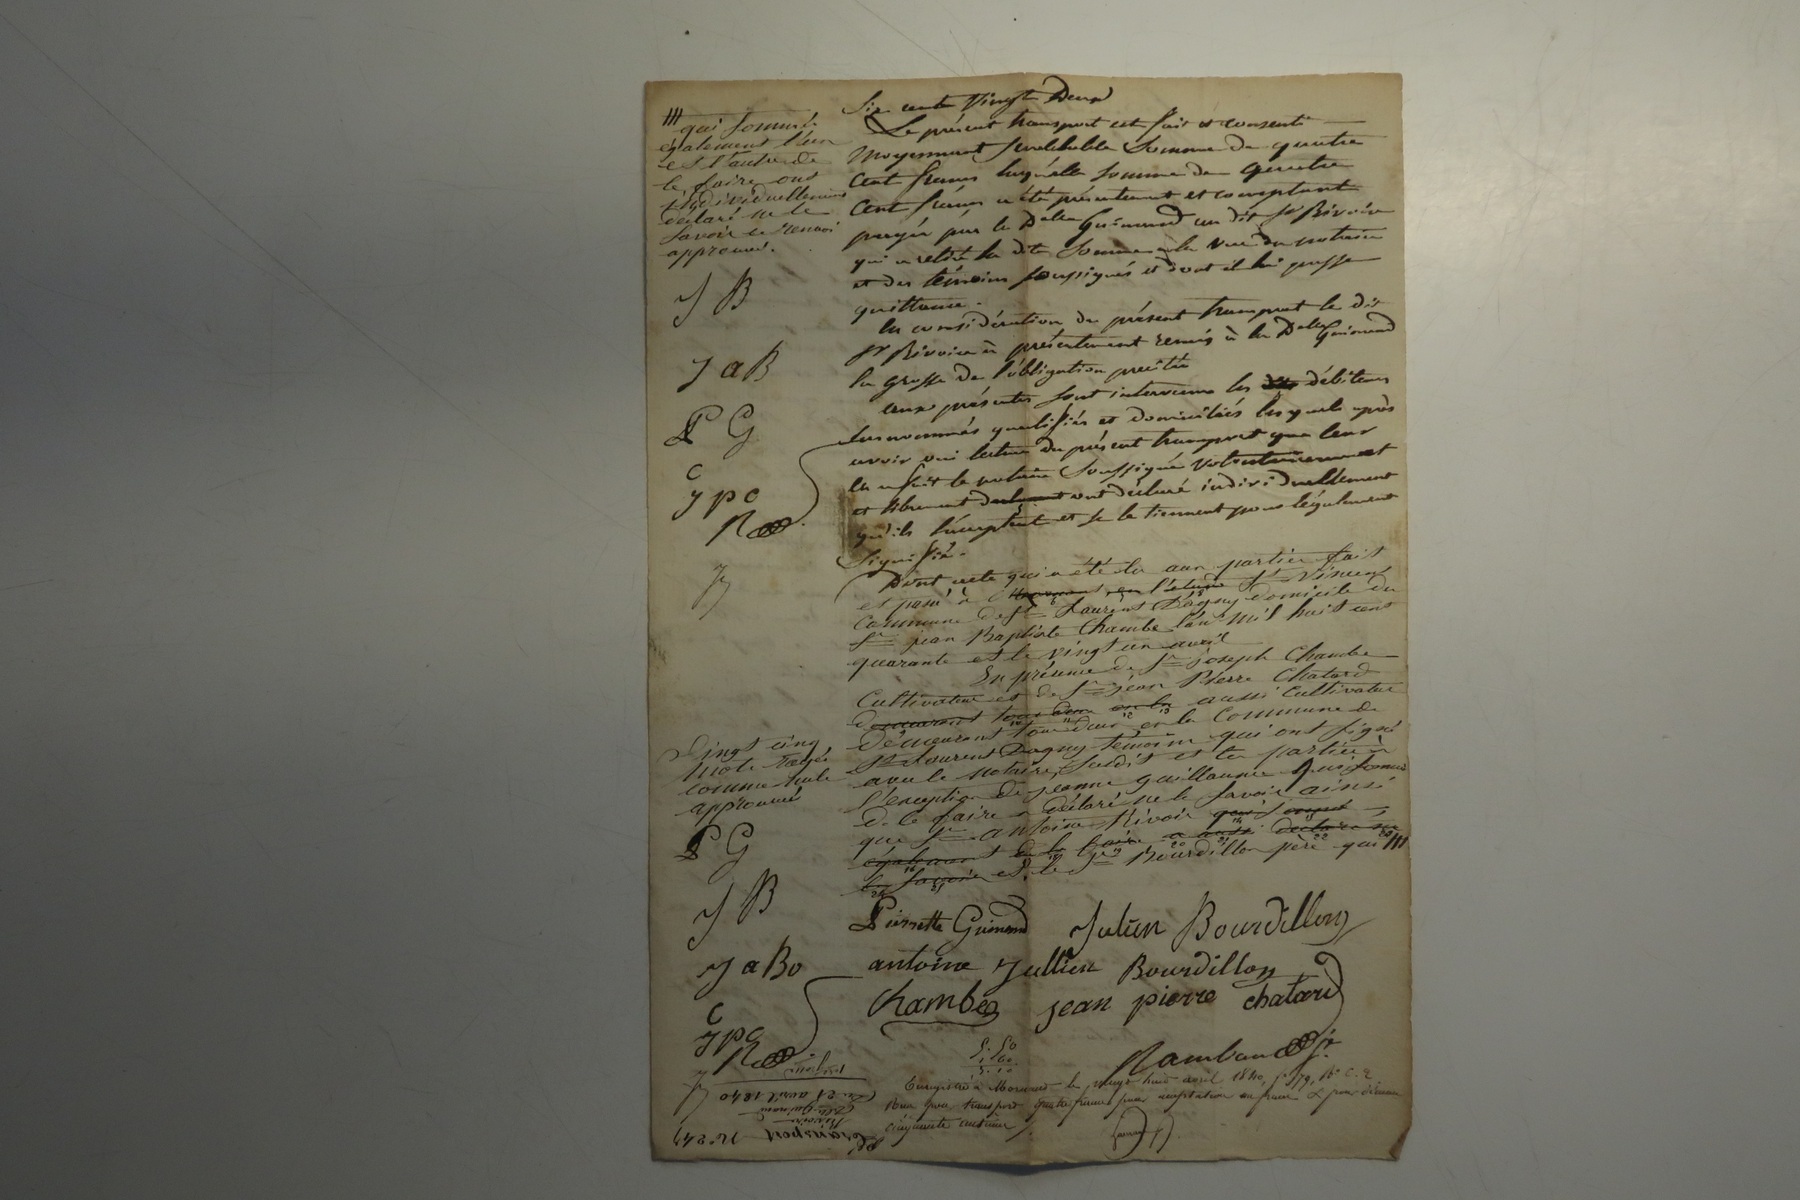 Six cent Vingt Deux
Le présent transport est fait et consenti
moyennant semblable somme de quatre
Cent francs laquelle somme de quatre
Cent francs a été présentement et comptant
payée par la Delle Guimond au dit Sr Rivoire
qui a retiré la dite somme à la vue du notaire
et des témoins soussignés et dont il lui passe
quittance.
En considération du présent transport le dit
Sr Rivoire a présentement remis à la Delle Guimond
la grosse de l'obligation precitée
aux présentes sont intervenu les débiteurs
susnommés qualifiés et domiciliés lesquels après
avoir oui lecture du présent transport que leur
en a fait le notaire soussigné volontairement
et librement ont déclaré individuellement
qu'ils l'acceptent et se le tiennent pour légalement
signifié.
Dont acte qui a été lu aux parties fait
et passé à en l'étude St Vincent
Commune de St Laurent Dagny domicile du
Sr jean Baptiste Chambe l'an mil huit cent
quarante et le vingt un avril
En présence de Sr joseph Chambe
Cultivateur et de Sr jean Pierre Chatard
demeurant tous deux en la aussi Cultivateur
demeurant tous deux en la Commune de
St Laurent Dagny témoins qui ont signé
avec le notaire, susdit et les parties à
l'exception de jeanne guillaume qui sommé
de le faire a déclaré ne le savoir ainsi
que Sr antoine Rivoir qui sommé
egalement de le faire a aussi déclaré ne
le savoir et le Sr Bourdillon père qui III
III
qui sommés
également l'un
et l'autre de
le faire ont
individuellement
déclaré ne le
savoir ce renvoi
approuvé.
J B
J a B
P G
C
J p c
R
Vingt cinq
mots rayés
comme nuls
approuvé
P G
J B
J a Bo
C
J p c
R
Pierrette Guimond Julien Bourdillon
antoine Jullien Bourdillon
Chambe jean pierre chatard
Rambaud
Enregistré à Mornant le vingt huit avril 1840, f° 179, R° C. 2
Reçu pour transport quatre francs pour acceptation un franc & pour décime
cinquante centimes
Du 21 avril 1840
Delle Guimond
Rivoire
Transport N° 247